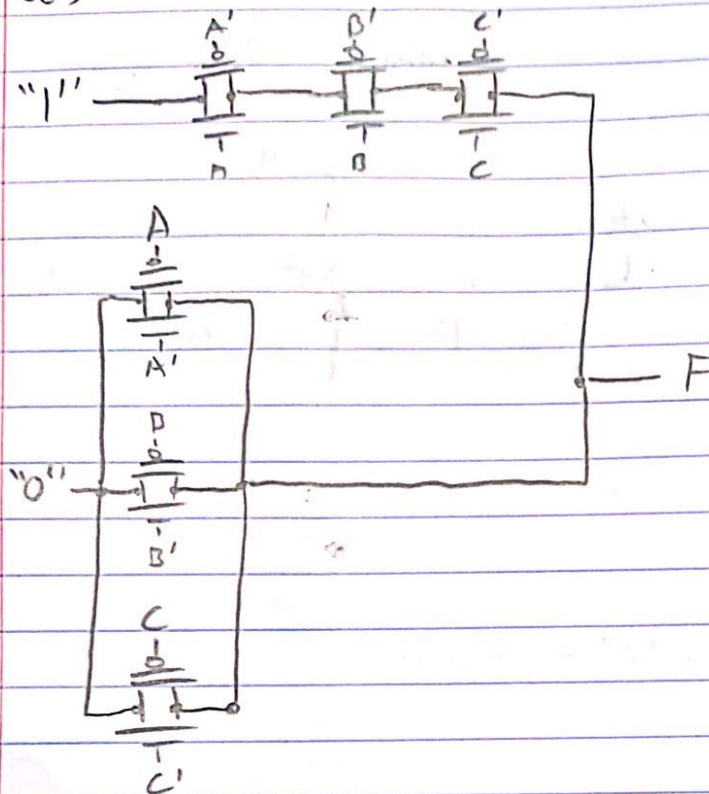 A' B' C'
"1"
A B C
A
A'
F
B
"0"
B'
C
C'